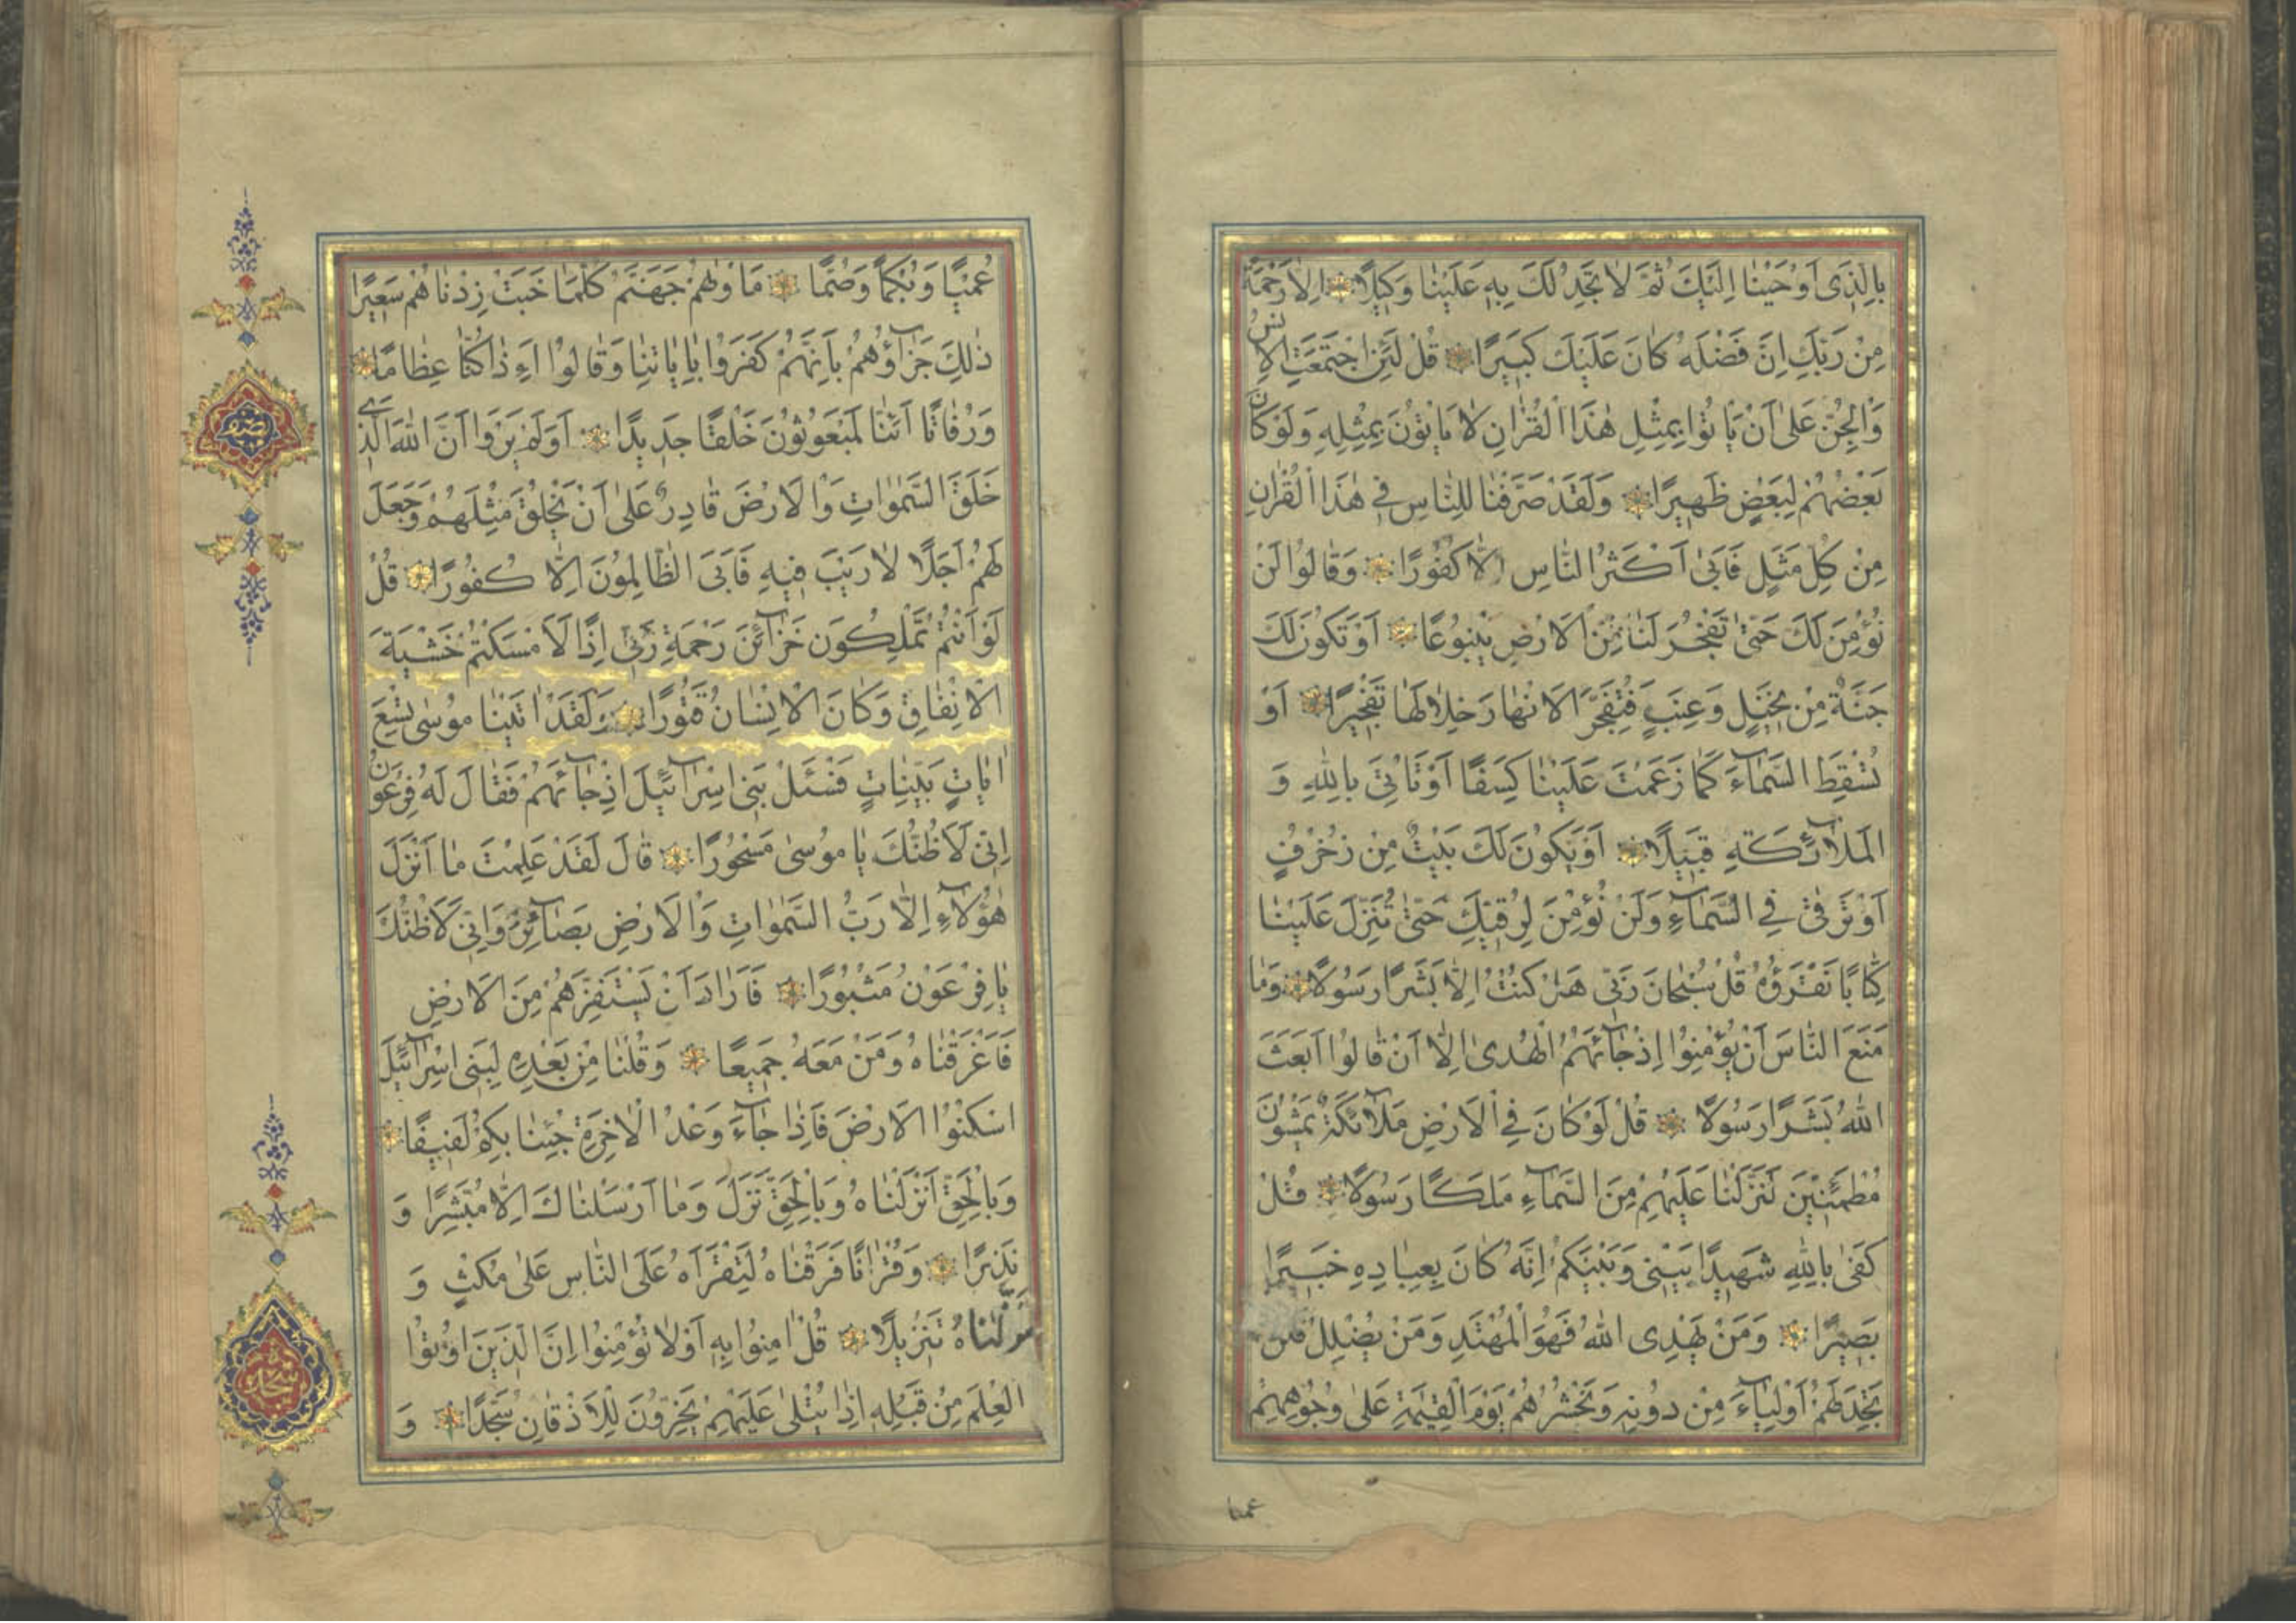 بِالَّذِى اَوْحَيْنٰا اِلَيْكَ ثُمَّ لٰا تَجِدُ لَكَ بِهِ عَلَيْنٰا وَكِيلًا اِلّٰا رَحْمَةً
مِنْ رَبِّكَ اِنَّ فَضْلَهُ كٰانَ عَلَيْكَ كَبِيرًا قُلْ لَئِنِ اجْتَمَعَتِ الْاِنْسُ
وَالْجِنُّ عَلىٰ اَنْ يَاْتُوا بِمِثْلِ هٰذَا الْقُرْاٰنِ لٰا يَاْتُونَ بِمِثْلِهِ وَلَوْ كٰانَ
بَعْضُهُمْ لِبَعْضٍ ظَهِيرًا وَلَقَدْ صَرَّفْنٰا لِلنّٰاسِ فِى هٰذَا الْقُرْاٰنِ
مِنْ كُلِّ مَثَلٍ فَاَبىٰ اَكْثَرُ النّٰاسِ اِلّٰا كُفُورًا وَقٰالُوا لَنْ
نُؤْمِنَ لَكَ حَتّىٰ تَفْجُرَ لَنٰا مِنَ الْاَرْضِ يَنْبُوعًا اَوْ تَكُونَ لَكَ
جَنَّةٌ مِنْ نَخِيلٍ وَعِنَبٍ فَتُفَجِّرَ الْاَنْهٰارَ خِلٰالَهٰا تَفْجِيرًا اَوْ
تُسْقِطَ السَّمٰاءَ كَمٰا زَعَمْتَ عَلَيْنٰا كِسَفًا اَوْ تَاْتِىَ بِاللّٰهِ وَ
الْمَلٰائِكَةِ قَبِيلًا اَوْ يَكُونَ لَكَ بَيْتٌ مِنْ زُخْرُفٍ
اَوْ تَرْقىٰ فِى السَّمٰاءِ وَلَنْ نُؤْمِنَ لِرُقِيِّكَ حَتّىٰ تُنَزِّلَ عَلَيْنٰا
كِتٰابًا نَقْرَؤُهُ قُلْ سُبْحٰانَ رَبِّى هَلْ كُنْتُ اِلّٰا بَشَرًا رَسُولًا وَمٰا
مَنَعَ النّٰاسَ اَنْ يُؤْمِنُوا اِذْ جٰائَهُمُ الْهُدىٰ اِلّٰا اَنْ قٰالُوا اَبَعَثَ
اللّٰهُ بَشَرًا رَسُولًا قُلْ لَوْ كٰانَ فِى الْاَرْضِ مَلٰائِكَةٌ يَمْشُونَ
مُطْمَئِنِّينَ لَنَزَّلْنٰا عَلَيْهِمْ مِنَ السَّمٰاءِ مَلَكًا رَسُولًا قُلْ
كَفىٰ بِاللّٰهِ شَهِيدًا بَيْنِى وَبَيْنَكُمْ اِنَّهُ كٰانَ بِعِبٰادِهِ خَبِيرًا
بَصِيرًا وَمَنْ يَهْدِى اللّٰهُ فَهُوَ الْمُهْتَدِ وَمَنْ يُضْلِلْ فَلَنْ
تَجِدَ لَهُمْ اَوْلِيٰاءَ مِنْ دُونِهِ وَنَحْشُرُهُمْ يَوْمَ الْقِيٰمَةِ عَلىٰ وُجُوهِهِمْ
عميا
عُمْيًا وَبُكْمًا وَصُمًّا مَاْوٰهُمْ جَهَنَّمُ كُلَّمٰا خَبَتْ زِدْنٰاهُمْ سَعِيرًا
ذٰلِكَ جَزٰاؤُهُمْ بِاَنَّهُمْ كَفَرُوا بِاٰيٰاتِنٰا وَقٰالُوا اَءِذٰا كُنّٰا عِظٰامًا
وَرُفٰاتًا اَئِنّٰا لَمَبْعُوثُونَ خَلْقًا جَدِيدًا اَوَلَمْ يَرَوْا اَنَّ اللّٰهَ الَّذِى
خَلَقَ السَّمٰوٰاتِ وَالْاَرْضَ قٰادِرٌ عَلىٰ اَنْ يَخْلُقَ مِثْلَهُمْ وَجَعَلَ
لَهُمْ اَجَلًا لٰا رَيْبَ فِيهِ فَاَبَى الظّٰالِمُونَ اِلّٰا كُفُورًا قُلْ
لَوْ اَنْتُمْ تَمْلِكُونَ خَزٰائِنَ رَحْمَةِ رَبِّى اِذًا لَاَمْسَكْتُمْ خَشْيَةَ
الْاِنْفٰاقِ وَكٰانَ الْاِنْسٰانُ قَتُورًا وَلَقَدْ اٰتَيْنٰا مُوسىٰ تِسْعَ
اٰيٰاتٍ بَيِّنٰاتٍ فَسْئَلْ بَنِى اِسْرٰائِيلَ اِذْ جٰائَهُمْ فَقٰالَ لَهُ فِرْعَوْنُ
اِنِّى لَاَظُنُّكَ يٰا مُوسىٰ مَسْحُورًا قٰالَ لَقَدْ عَلِمْتَ مٰا اَنْزَلَ
هٰؤُلٰاءِ اِلّٰا رَبُّ السَّمٰوٰاتِ وَالْاَرْضِ بَصٰائِرَ وَاِنِّى لَاَظُنُّكَ
يٰا فِرْعَوْنُ مَثْبُورًا فَاَرٰادَ اَنْ يَسْتَفِزَّهُمْ مِنَ الْاَرْضِ
فَاَغْرَقْنٰاهُ وَمَنْ مَعَهُ جَمِيعًا وَقُلْنٰا مِنْ بَعْدِهِ لِبَنِى اِسْرٰائِيلَ
اسْكُنُوا الْاَرْضَ فَاِذٰا جٰاءَ وَعْدُ الْاٰخِرَةِ جِئْنٰا بِكُمْ لَفِيفًا
وَبِالْحَقِّ اَنْزَلْنٰاهُ وَبِالْحَقِّ نَزَلَ وَمٰا اَرْسَلْنٰاكَ اِلّٰا مُبَشِّرًا وَ
نَذِيرًا وَقُرْاٰنًا فَرَقْنٰاهُ لِتَقْرَاَهُ عَلَى النّٰاسِ عَلىٰ مُكْثٍ وَ
نَزَّلْنٰاهُ تَنْزِيلًا قُلْ اٰمِنُوا بِهِ اَوْ لٰا تُؤْمِنُوا اِنَّ الَّذِينَ اُوتُوا
الْعِلْمَ مِنْ قَبْلِهِ اِذٰا يُتْلىٰ عَلَيْهِمْ يَخِرُّونَ لِلْاَذْقٰانِ سُجَّدًا وَ
نصف
سجده